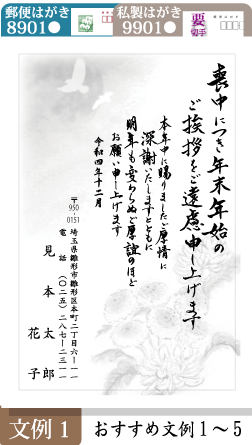 郵便はがき
8901●
私製はがき
9901●
要
切手
喪中につき年末年始の
ご挨拶をご遠慮申し上げます
本年中に賜りましたご厚情に
深謝いたしますとともに
明年も変わらぬご厚誼のほど
お願い申し上げます
令和四年十二月
〒950-0151
埼玉県雛形市雛形区本町二丁目六ー一一
電話(〇二五)二八七ー二三一一
見本太郎
花子
文例1
おすすめ文例1~5